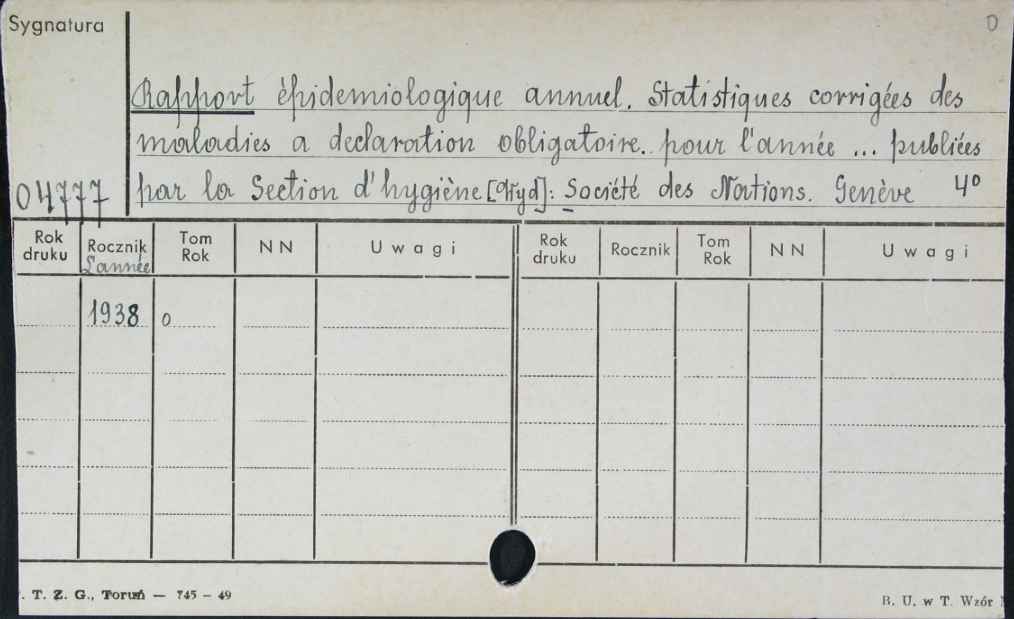 Sygnatura
D
Rapport épidemiologique annuel. Statistiques corrigées des
maladies a declaration obligatoire.. pour l'année ... publiées
04777 par la Section d'hygiène [Wyd]: Société des Nations. Genève 4°
Rok druku Rocznik Tom Rok NN Uwagi Rok druku Rocznik Tom Rok NN Uwagi
L'année
1938 0
. T. Z. G., Toruń — 745 – 49
B. U. w T. Wzór